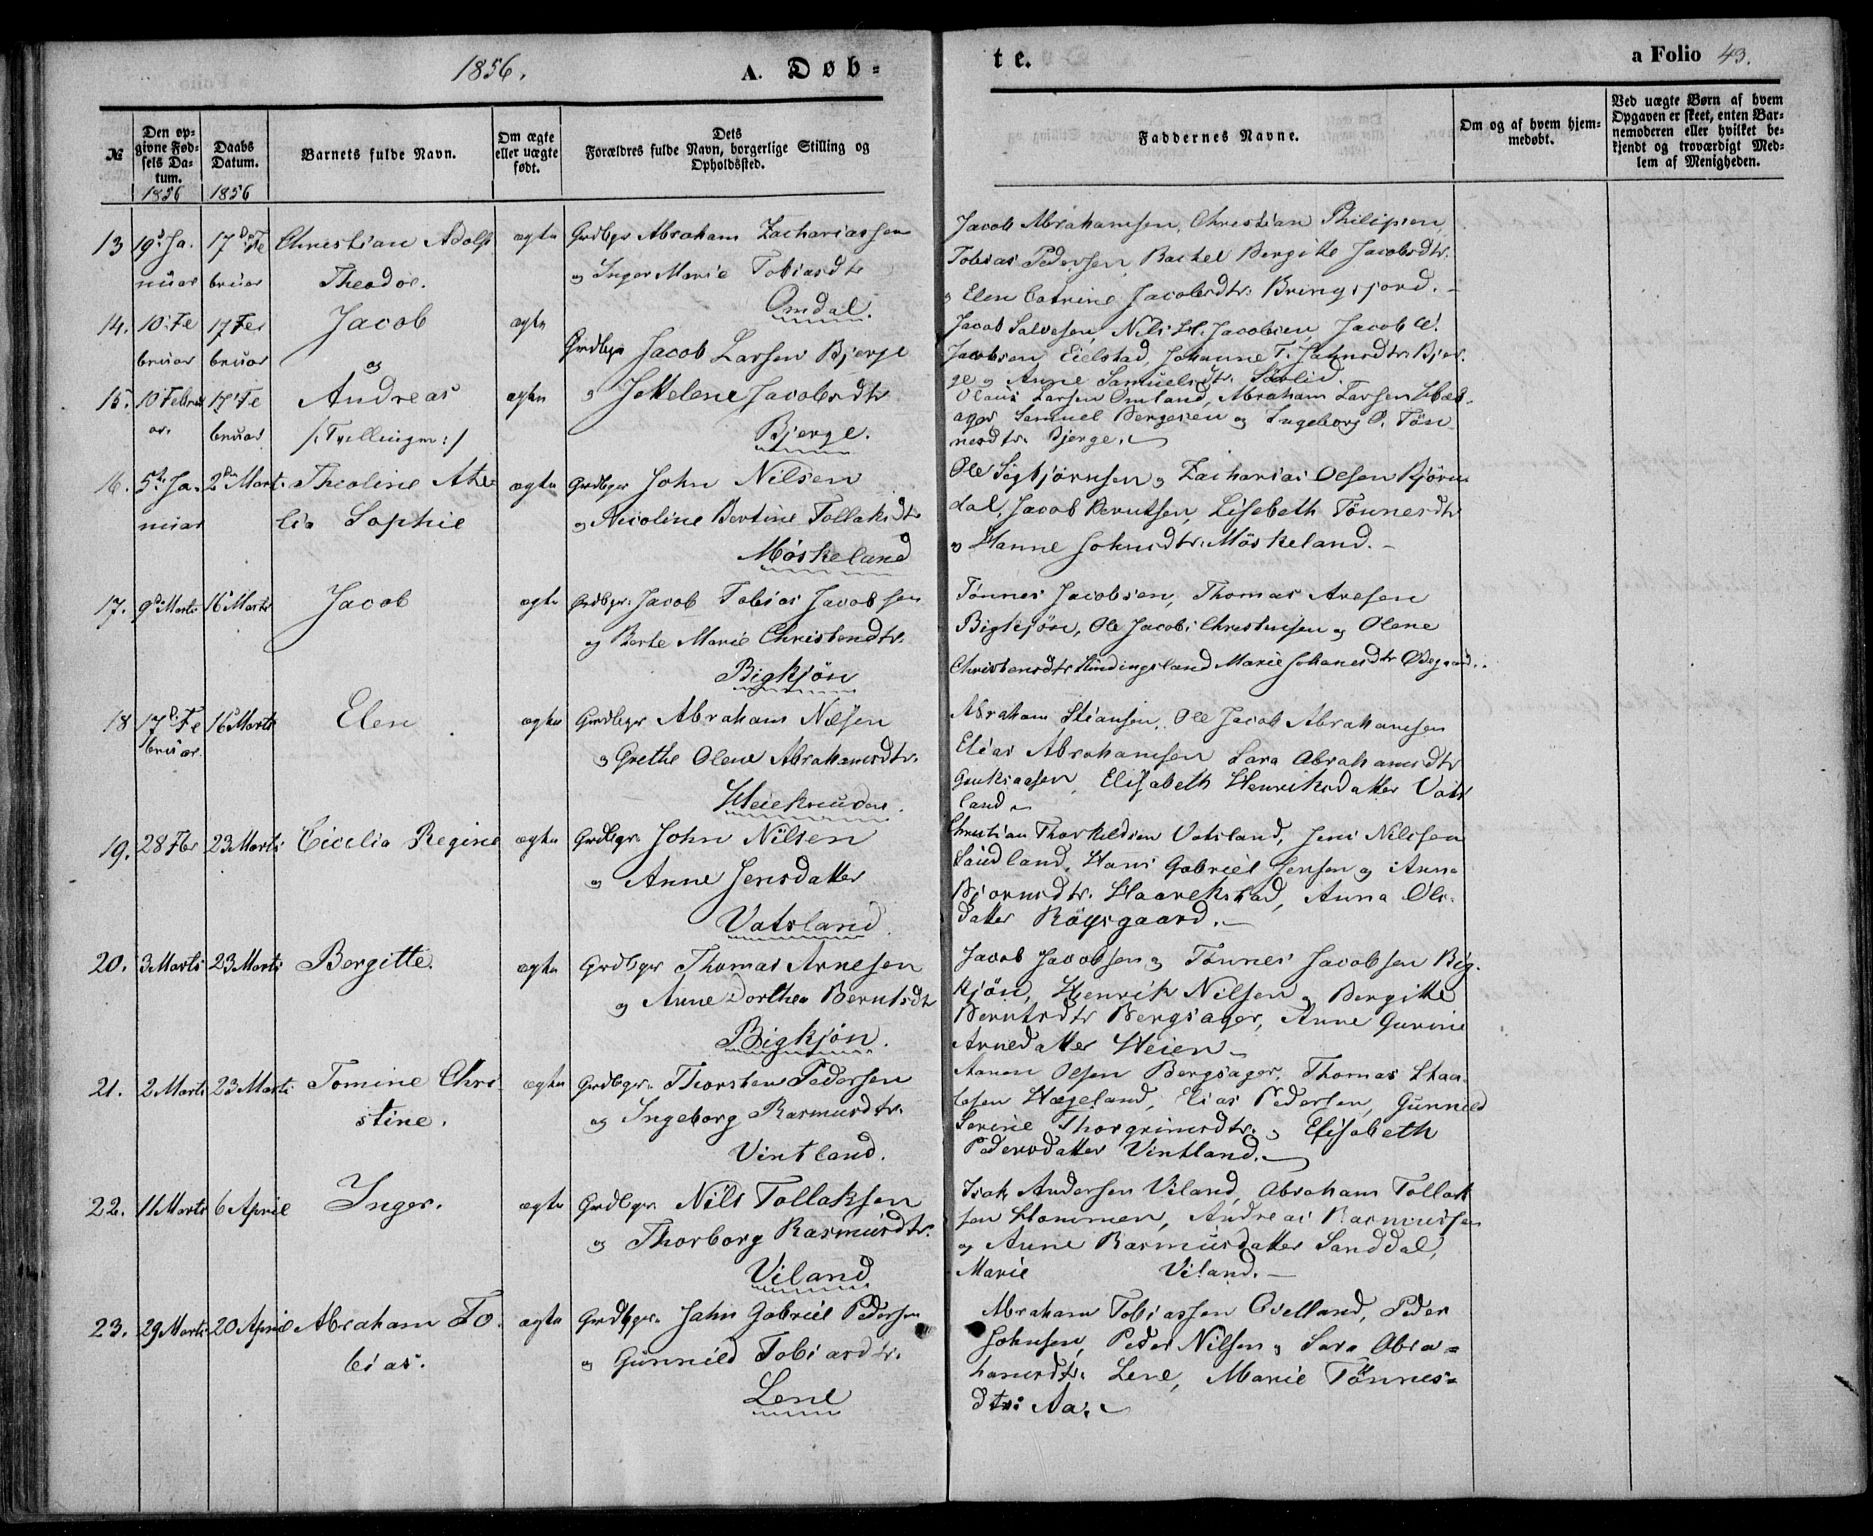 1856. A. Døb-
te. a Folio 43.
№
Den op-
givne Fød-
sels Da-
tum.
1856
Daabs
Datum.
1856
Barnets fulde Navn.
Om ægte
eller uægte
født.
Dets
Forældres fulde Navn, borgerlige Stilling og
Opholdssted.
Faddernes Navne.
Om og af hvem hjem-
medøbt.
Ved uægte Børn af hvem
Opgaven er skeet, enten Bar-
nemoderen eller hvilket be-
kjendt og troværdigt Med-
lem af Menigheden.
13 19d Ja- 17de Fe Christian Adolf ægte Grdbgr Abraham Zachariassen
nuar bruar Theodor. og Inger Marie Tobiasdtr
Omdal.
Jacob Abrahamsen, Christian Philipsen,
Tobias Pedersen, Rachel Bergitte Jacobsdtr.
og Elen Catrine Jacobsdtr. Bringsjord. -
14. 10 Fe 17 Fe Jacob ægte
bruar bruar og Grdbgr Jacob Larsen Bjerge
Jacob Salvesen, Nils H. Jacobsen, Jacob
Jacobsen Eielstad, Johanne T. Jahnsdtr. Bjer-
ge og Anne Samuelsdtr.
15. 10 Febru 17 Fe Andreas ægte og Helene Jacobsdtr
ar. bruar /: Tvellinger :/ Bjerge.
Olaus Larsen Omland, Abraham Larsen Hæd-
Samuel Bergesen og Ingeborg O. Tøn-
nesdtr. Bjerge.
16. 5te Ja- 2den Mart. Theoline Athe- ægte Grdbgr John Nilsen
nuar lia Sophie og Nicoline Bertine Tollaksdtr
Møskeland
Ole Sigbjørnsen og Zacharias Olsen Bjørn-
dal, Jacob Berntsen, Lisebeth Tønnesdtr
og Hanne Johnsdtr. Møskeland. -
17. 9d Marts 16 Marts Jacob ægte Grdbgr. Jacob Tobias Jacobsen
og Berte Marie Christensdtr.
Bigkjøn
Tønnes Jacobsen, Thomas Aresen
Bigkjøn, Ole Jacob Christensen og Olene
Christensdtr Hindingsland Marie Johanesdtr Øðegaard.
18 17d Fe 16 Marts Elen ægte Grdbgr Abraham Nilsen
bruar. og Grethe Olene Abrahamsdtr.
Heieknuden.
Abraham Stiansen, Ole Jacob Abrahamsen
Elias Abrahamsen Sara Abrahamsdtr
Elisabeth Henriksdatter Vats
land.
19. 28 Fbr 23 Marts Cicelia Regine ægte Grdbgr. John Nilsen
og Anne Jensdatter
Vatsland.
Christian Thorkildsen Vatsland, Jens Nilssen
Saudland, Hans Gabriel Jensen og Anna
Bjornsdtr. Haarekstad, Anna Ols-
datter Røysgaard. -
20. 3 Marts 23 Marts Bergitte. ægte Grdbgr Thomas Arnesen
og Anne Dorthea Berntsdtr
Bigkjøn.
Jacob Jacobsen og Tønnes Jacobsen Big-
kjøn, Henrik Nilsen og Bergitte
Berntsdtr Bergsager, Anne Gurine
Arnedatter Heien -
21. 2 Marts 23 Marts Tomine Chri ægte Grdbgr. Thorsten Pedersen
stine. og Ingeborg Rasmusdtr.
Vintland.
Aanen Olsen Bergsager, Thomas Staa-
lesen Hægeland, Elias Pedersen, Gunnild
Serine Thorgrimsdtr. og Elisabeth
Pedersdatter Vintland. -
22. 11 Marts 6 April Inger. ægte Grdbgr. Nils Tollaksen
og Thorborg Rasmusdtr.
Viland
Isak Andersen Viland, Abraham Tollak
sen Hommen, Andreas Rasmussen
og Anne Rasmusdatter Sanddal,
Marie Viland. -
23. 29 Marts 20 April Abraham To- ægte Grdbgr. Jahn Gabriel Pedersen
bias. og Gunnild Tobiasdtr.
Lene
Abraham Tobiassen Qvelland, Peder
Johnsen, Peder Nilsen og Sara Abra-
hamsdtr. Lene, Marie Tønnes-
dtr. Aa.